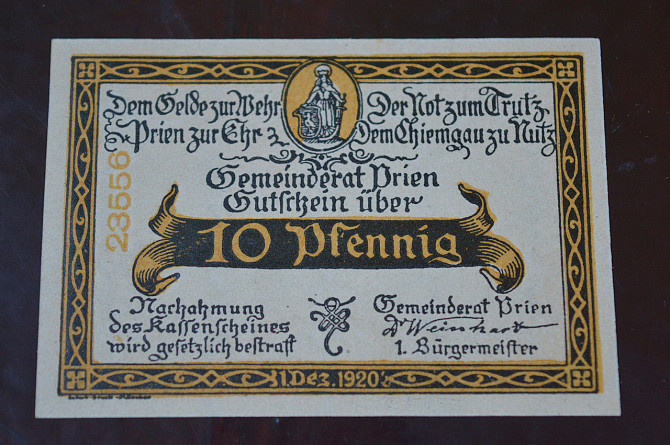 Dem Gelde zur Wehr Der Not zum Trutz
Prien zur Ehr Dem Chiemgau zu Nutz
23556
Gemeinderat Prien
Gutschein über
10 Pfennig
Nachahmung
des Kassenscheines
wird gesetzlich bestraft
Gemeinderat Prien
Dr Weinhart
1. Bürgermeister
1. Dez. 1920